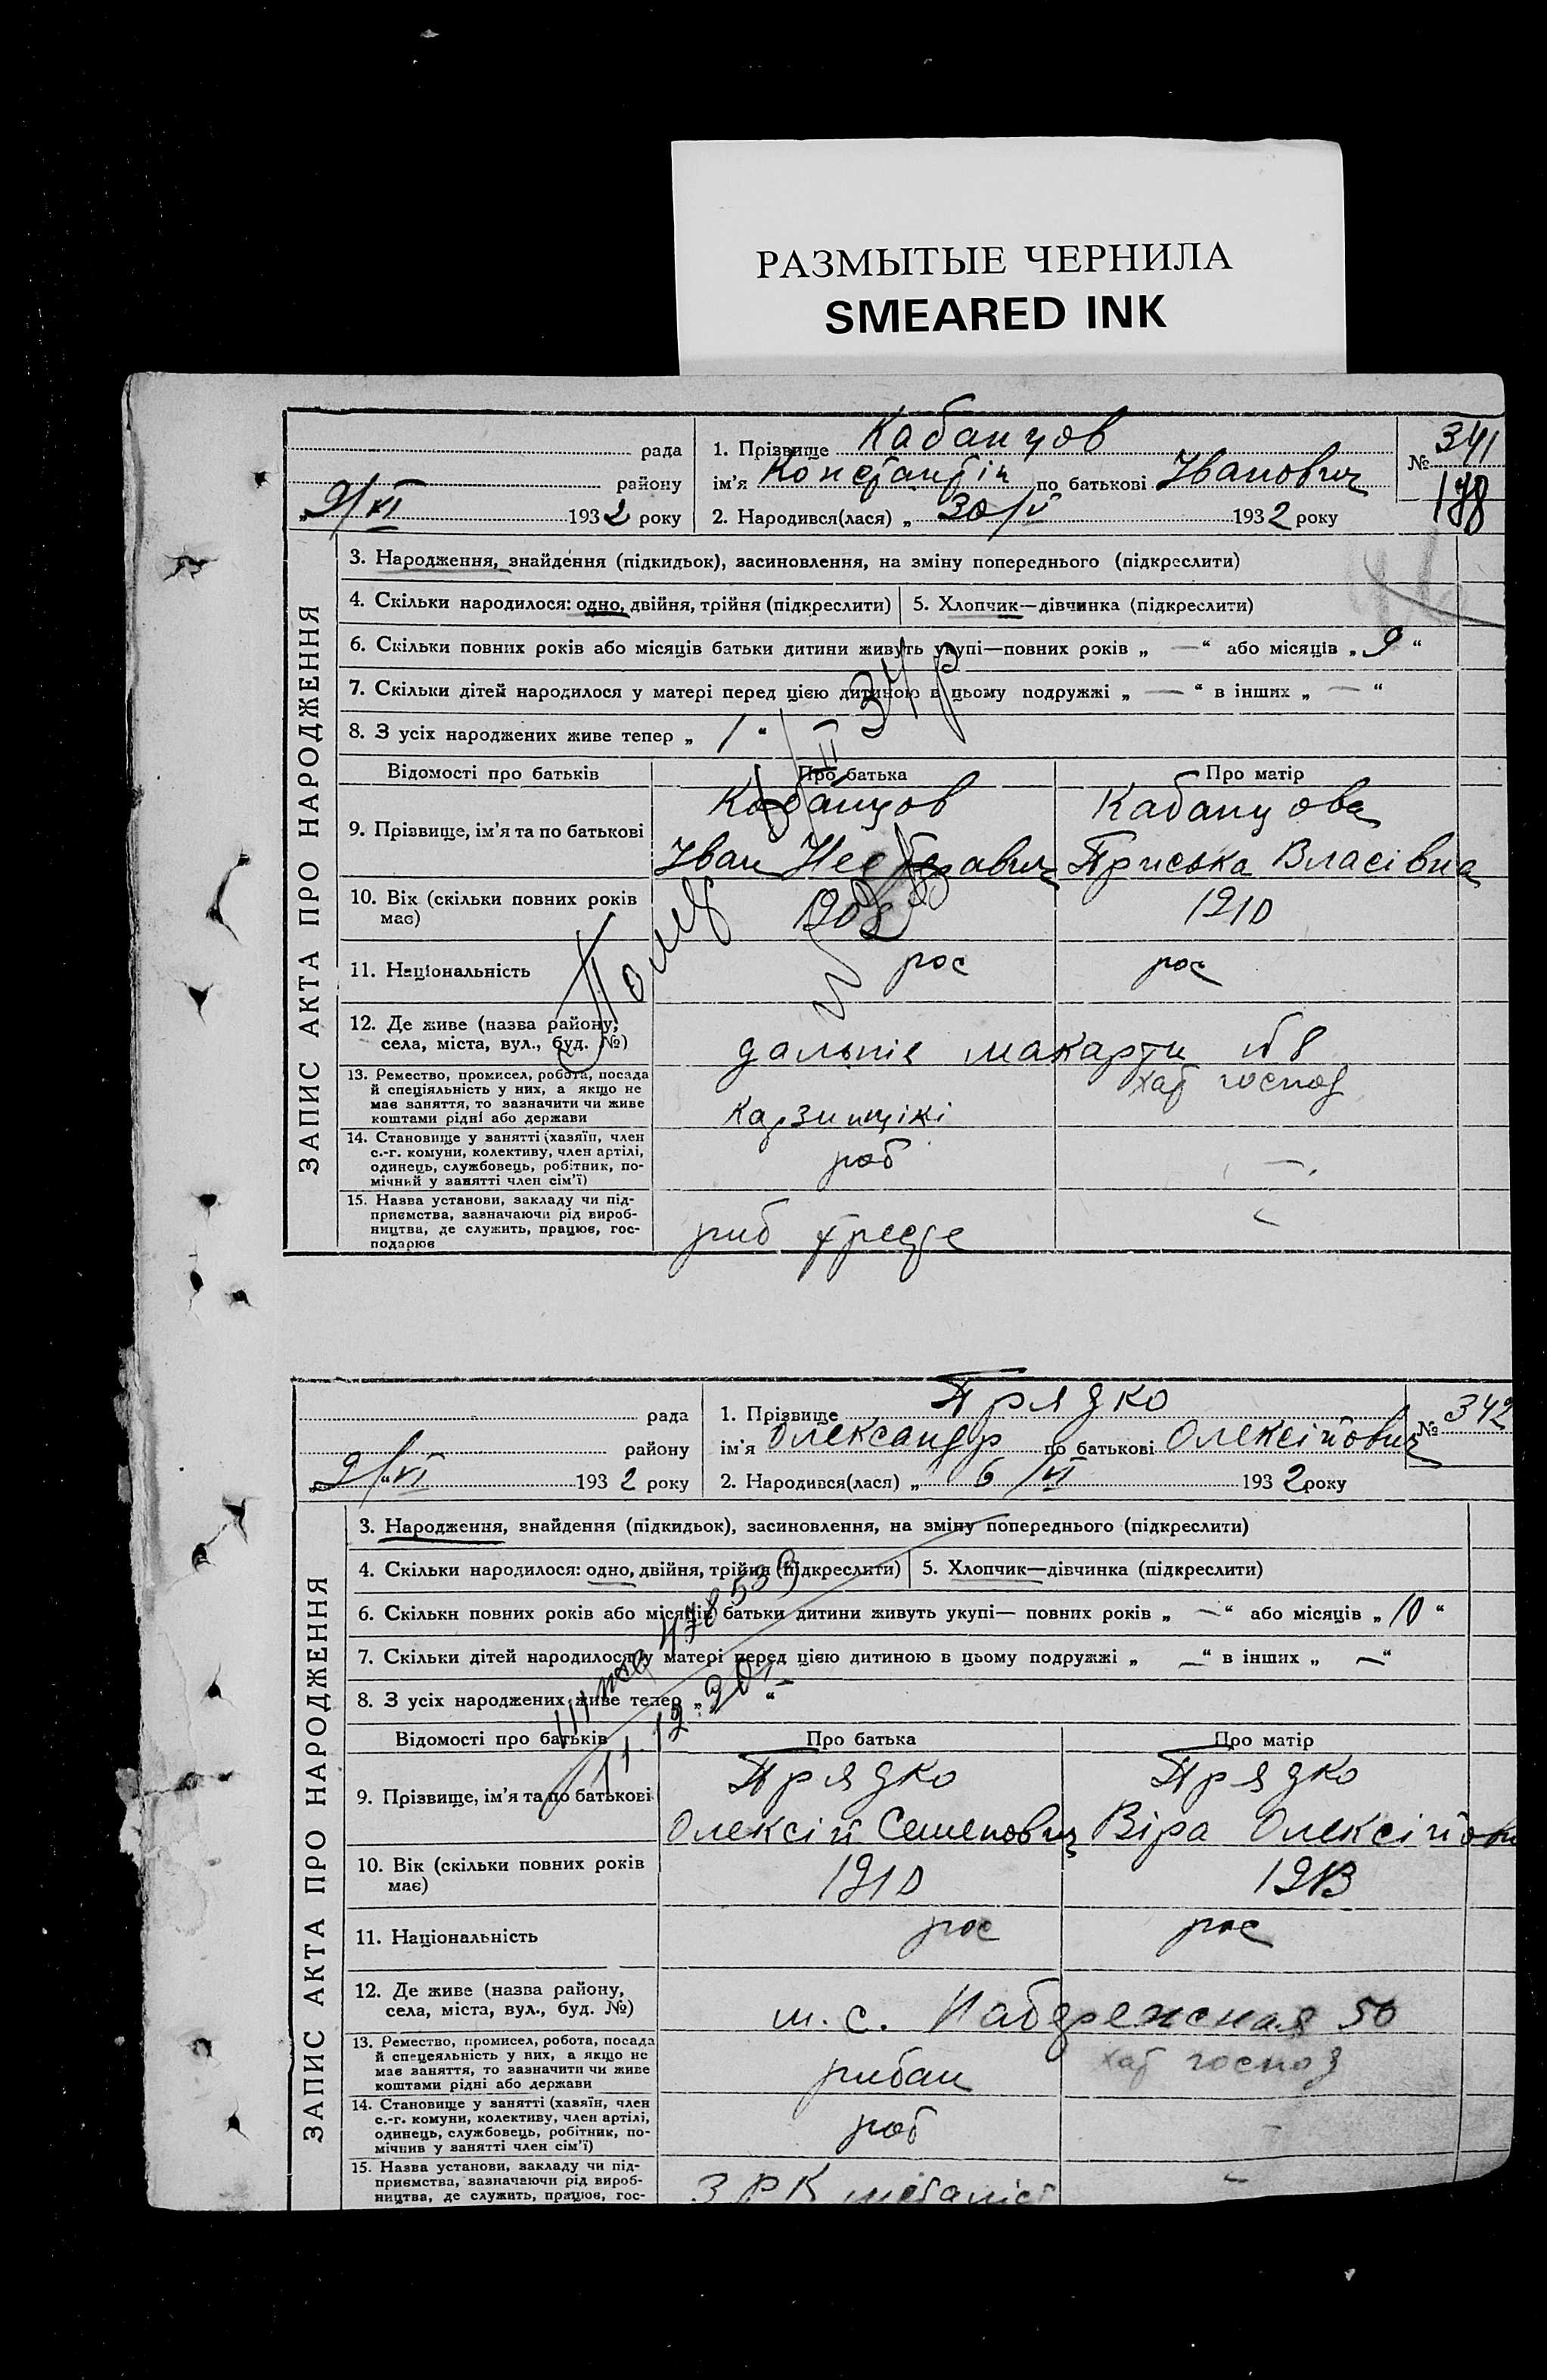 РАЗМЫТЫЕ ЧЕРНИЛА
SMEARED INK
рада
району
„9/VI 1932 року
1. Прізвище Кабанцов
ім'я Константін по батькові Іванович
2. Народився(лася) „ 30/V 1932 року
№ 341
178
ЗАПИС АКТА ПРО НАРОДЖЕННЯ
3. Народження, знайдення (підкидьок), засиновлення, на зміну попереднього (підкреслити)
4. Скільки народилося: одно, двійня, трійня (підкреслити)
5. Хлопчик—дівчинка (підкреслити)
6. Скільки повних років або місяців батьки дитини живуть укупі—повних років „ — “ або місяців „ 9 “
7. Скільки дітей народилося у матері перед цією дитиною в цьому подружжі „ — “ в інших „ — “
8. З усіх народжених живе тепер „ 1 “
34 р
II
Помер
Відомості про батьків
Про батька
Про матір
9. Прізвище, ім'я та по батькові
Кабанцов
Іван
Кабанцова
Приська Власівна
10. Вік (скільки повних років
має)
1908
1910
11. Національність
рос
рос
12. Де живе (назва району,
села, міста, вул., буд. №)
дальніе макорти № 8
13. Ремество, промисел, робота, посада
й спеціяльність у них, а якщо не
має заняття, то зазначити чи живе
коштами рідні або держави
Карзинщікі
хат господ
14. Становище у занятті (хазяїн, член
с.-г. комуни, колективу, член артілі,
одинець, службовець, робітник, по-
мічний у занятті член сім'ї)
роб
—
15. Назва установи, закладу чи під-
приємства, зазначаючи рід вироб-
ництва, де служить, працює, гос-
подарює
риб тресте
рада
району
„9/VI 1932 року
1. Прізвище Прядко
ім'я Олександр по батькові Олексійович
2. Народився(лася) „ 6/VI 1932 року
№ 342
ЗАПИС АКТА ПРО НАРОДЖЕННЯ
3. Народження, знайдення (підкидьок), засиновлення, на зміну попереднього (підкреслити)
4. Скільки народилося: одно, двійня, трійня (підкреслити)
5. Хлопчик—дівчинка (підкреслити)
6. Скільки повних років або місяців батьки дитини живуть укупі— повних років „ — “ або місяців „ 10 “
7. Скільки дітей народилося у матері перед цією дитиною в цьому подружжі „ — “ в інших „ — “
8. З усіх народжених живе тепер „ “
Відомості про батьків
Про батька
Про матір
9. Прізвище, ім'я та по батькові
Прядко
Олексій Семенович
Прядко
Віра Олексійовн
10. Вік (скільки повних років
має)
1910
1913
11. Національність
рос
рос
12. Де живе (назва району,
села, міста, вул., буд. №)
ш. с. Набережная 50
13. Ремество, промисел, робота, посада
й спецеяльність у них, а якщо не
має заняття, то зазначити чи живе
коштами рідні або держави
рибак
хат господ
14. Становище у занятті (хазяїн, член
с.-г. комуни, колективу, член артілі,
одинець, службовець, робітник, по-
мічнив у занятті член сім'ї)
роб
—
15. Назва установи, закладу чи під-
приємства, зазначаючи рід вироб-
ництва, де служить, працює, гос-
ЗРК